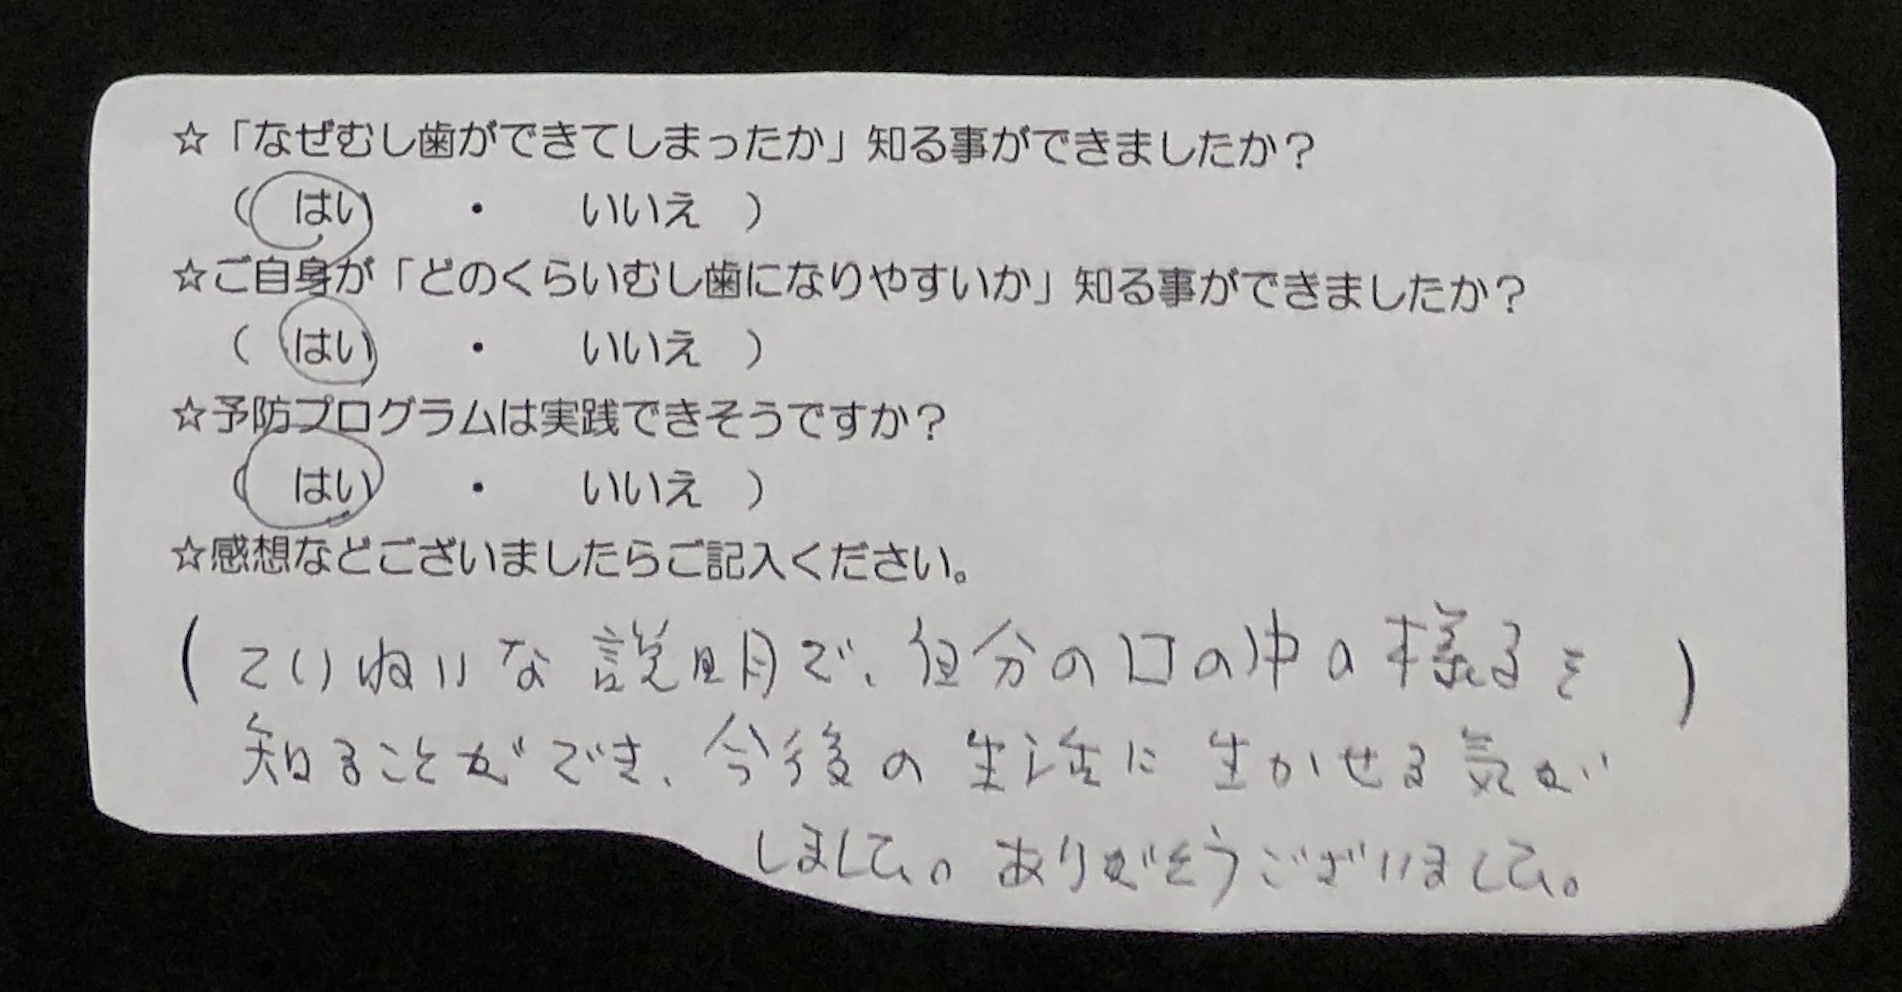 ☆「なぜむし歯ができてしまったか」知る事ができましたか？
（ はい ・ いいえ ）
☆ご自身が「どのくらいむし歯になりやすいか」知る事ができましたか？
（ はい ・ いいえ ）
☆予防プログラムは実践できそうですか？
（ はい ・ いいえ ）
☆感想などございましたらご記入ください。
（ ていねいな説明で、自分の口の中の様子を ）
知ることができ、今後の生活に生かせる気が
しました。ありがとうございました。